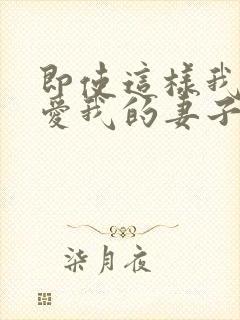 即使這樣我
愛我的妻子
柒月夜